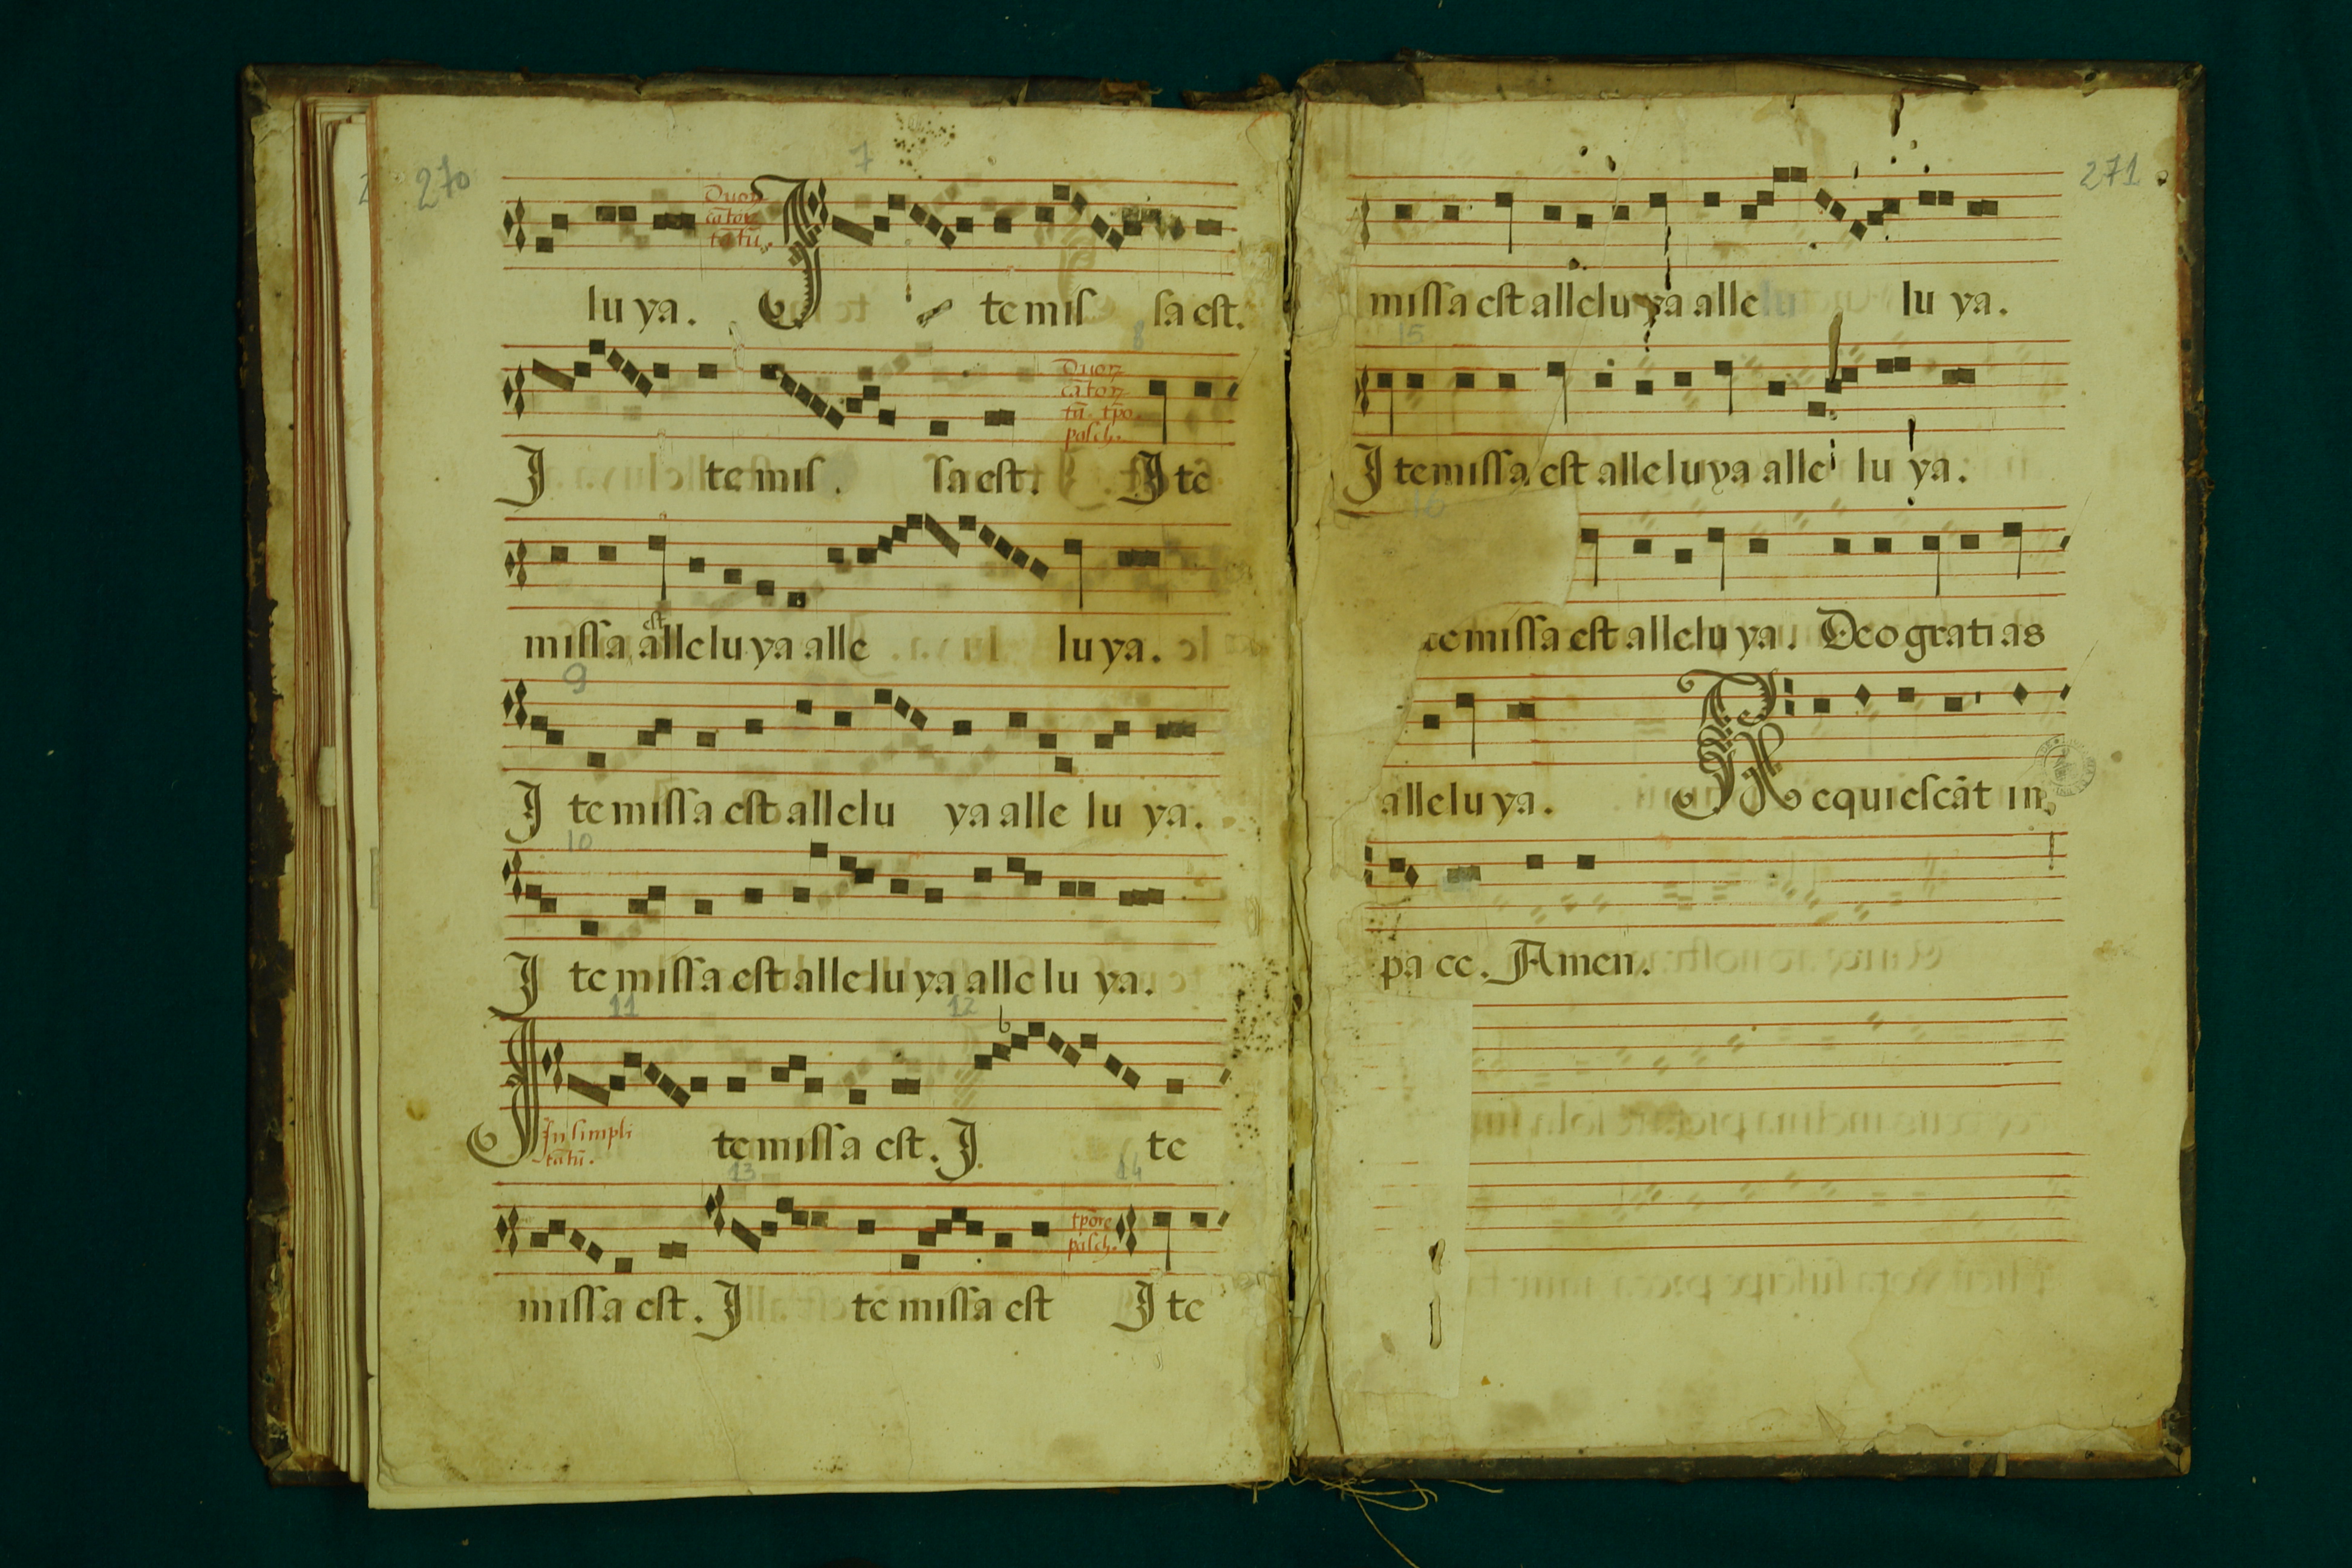 270
7
Duoꝝ
cātoꝝ
tātū.
lu ya. I te miſ ſa eſt.
8
Duoꝝ
cātoꝝ
tū. tꝑo.
paſch.
I te miſ . ſa eſt. I te
eſt
miſſa alleluya alle luya.
9
I te miſſa eſt allelu ya alle lu ya.
10
I te miſſa eſt alleluya alle lu ya.
11 12
In simpli
tātū.
I te miſſa eſt. I te
13 14
tp̄ore
paſch.
miſſa eſt. I te miſſa eſt I te
271
miſſa eſt alleluya alle lu ya.
15
I te miſſa eſt alleluya alle lu ya.
16
te miſſa eſt alleluya. Deo gratias
alleluya. Requieſcāt in
pa ce. Amen.